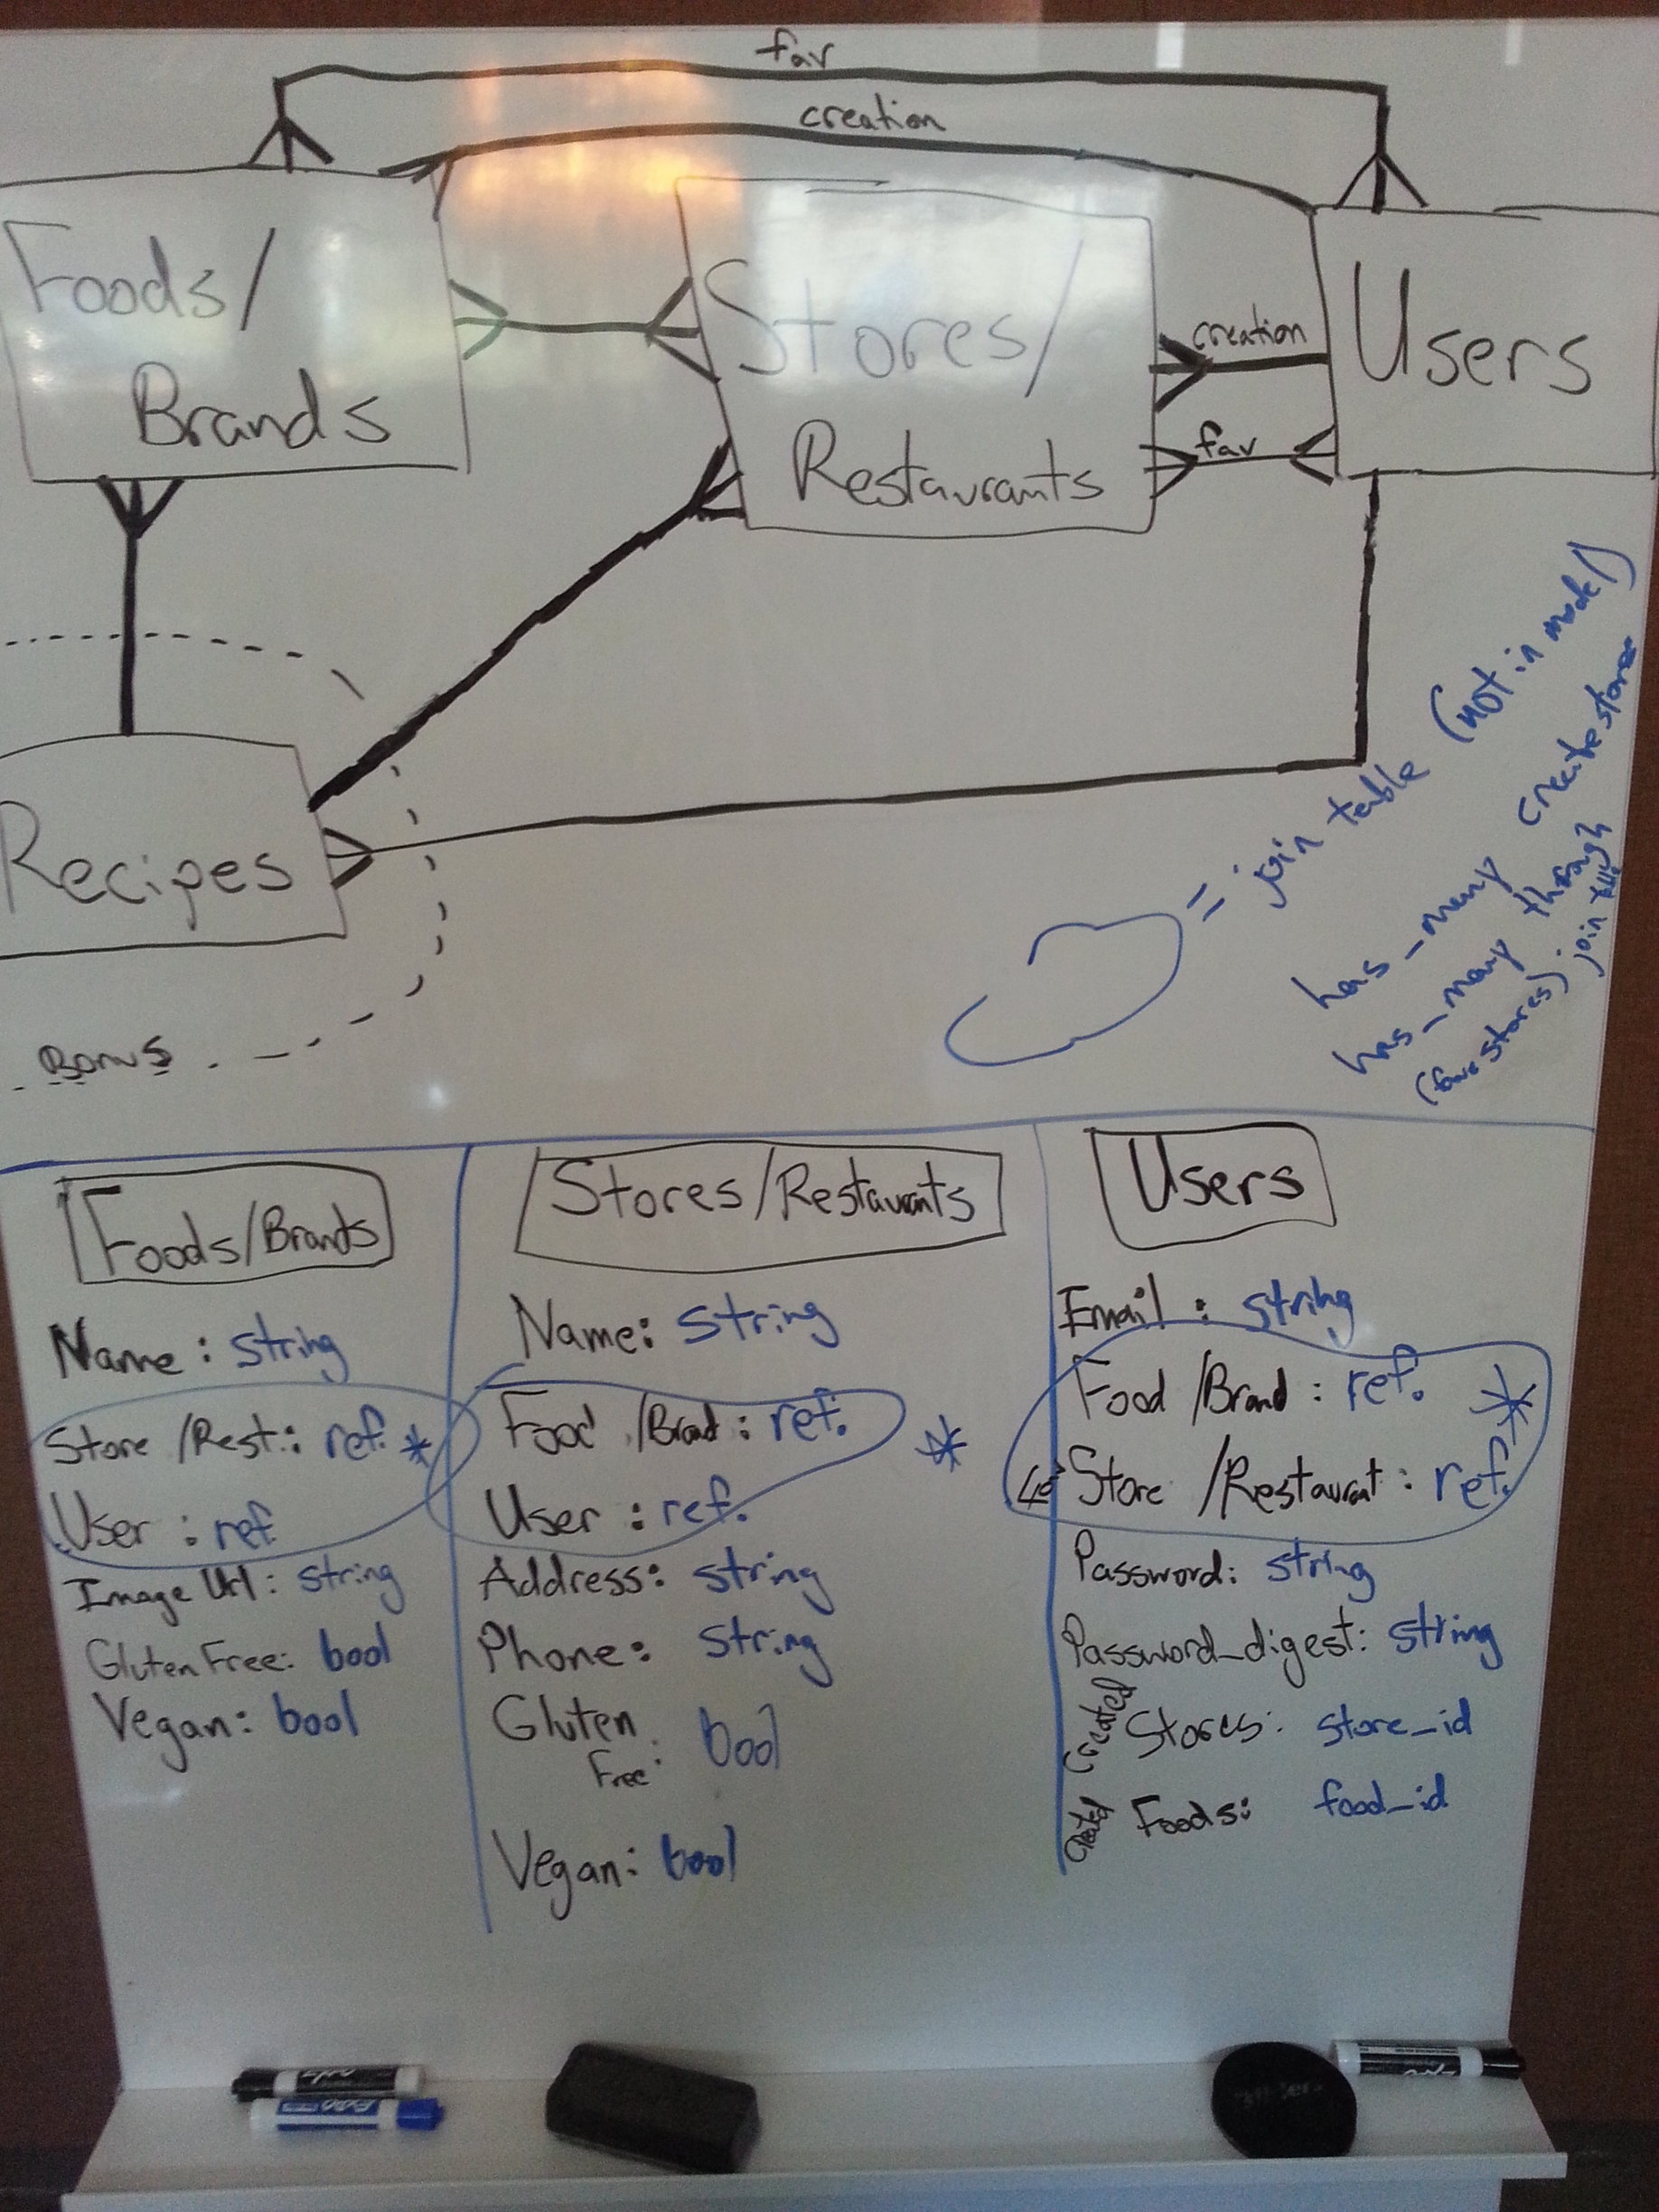 fav
creation
Foods/
Brands
Stores/
Restaurants
creation
fav
Users
Recipes
Bonus
= join table (not in model)
has_many createstores
has_many through
(favestores) join table
Foods/Brands
Name: string
Store/Rest.: ref. *
User: ref.
Image Url: string
Gluten Free: bool
Vegan: bool
Stores/Restaurants
Name: string
Food/Brand: ref. *
User: ref.
Address: string
Phone: string
Gluten
Free: bool
Vegan: bool
Users
Email: string
Food/Brand: ref. *
Store/Restaurant: ref.
Password: string
Password_digest: string
Created Stores: store_id
Foods: food_id
EXPO